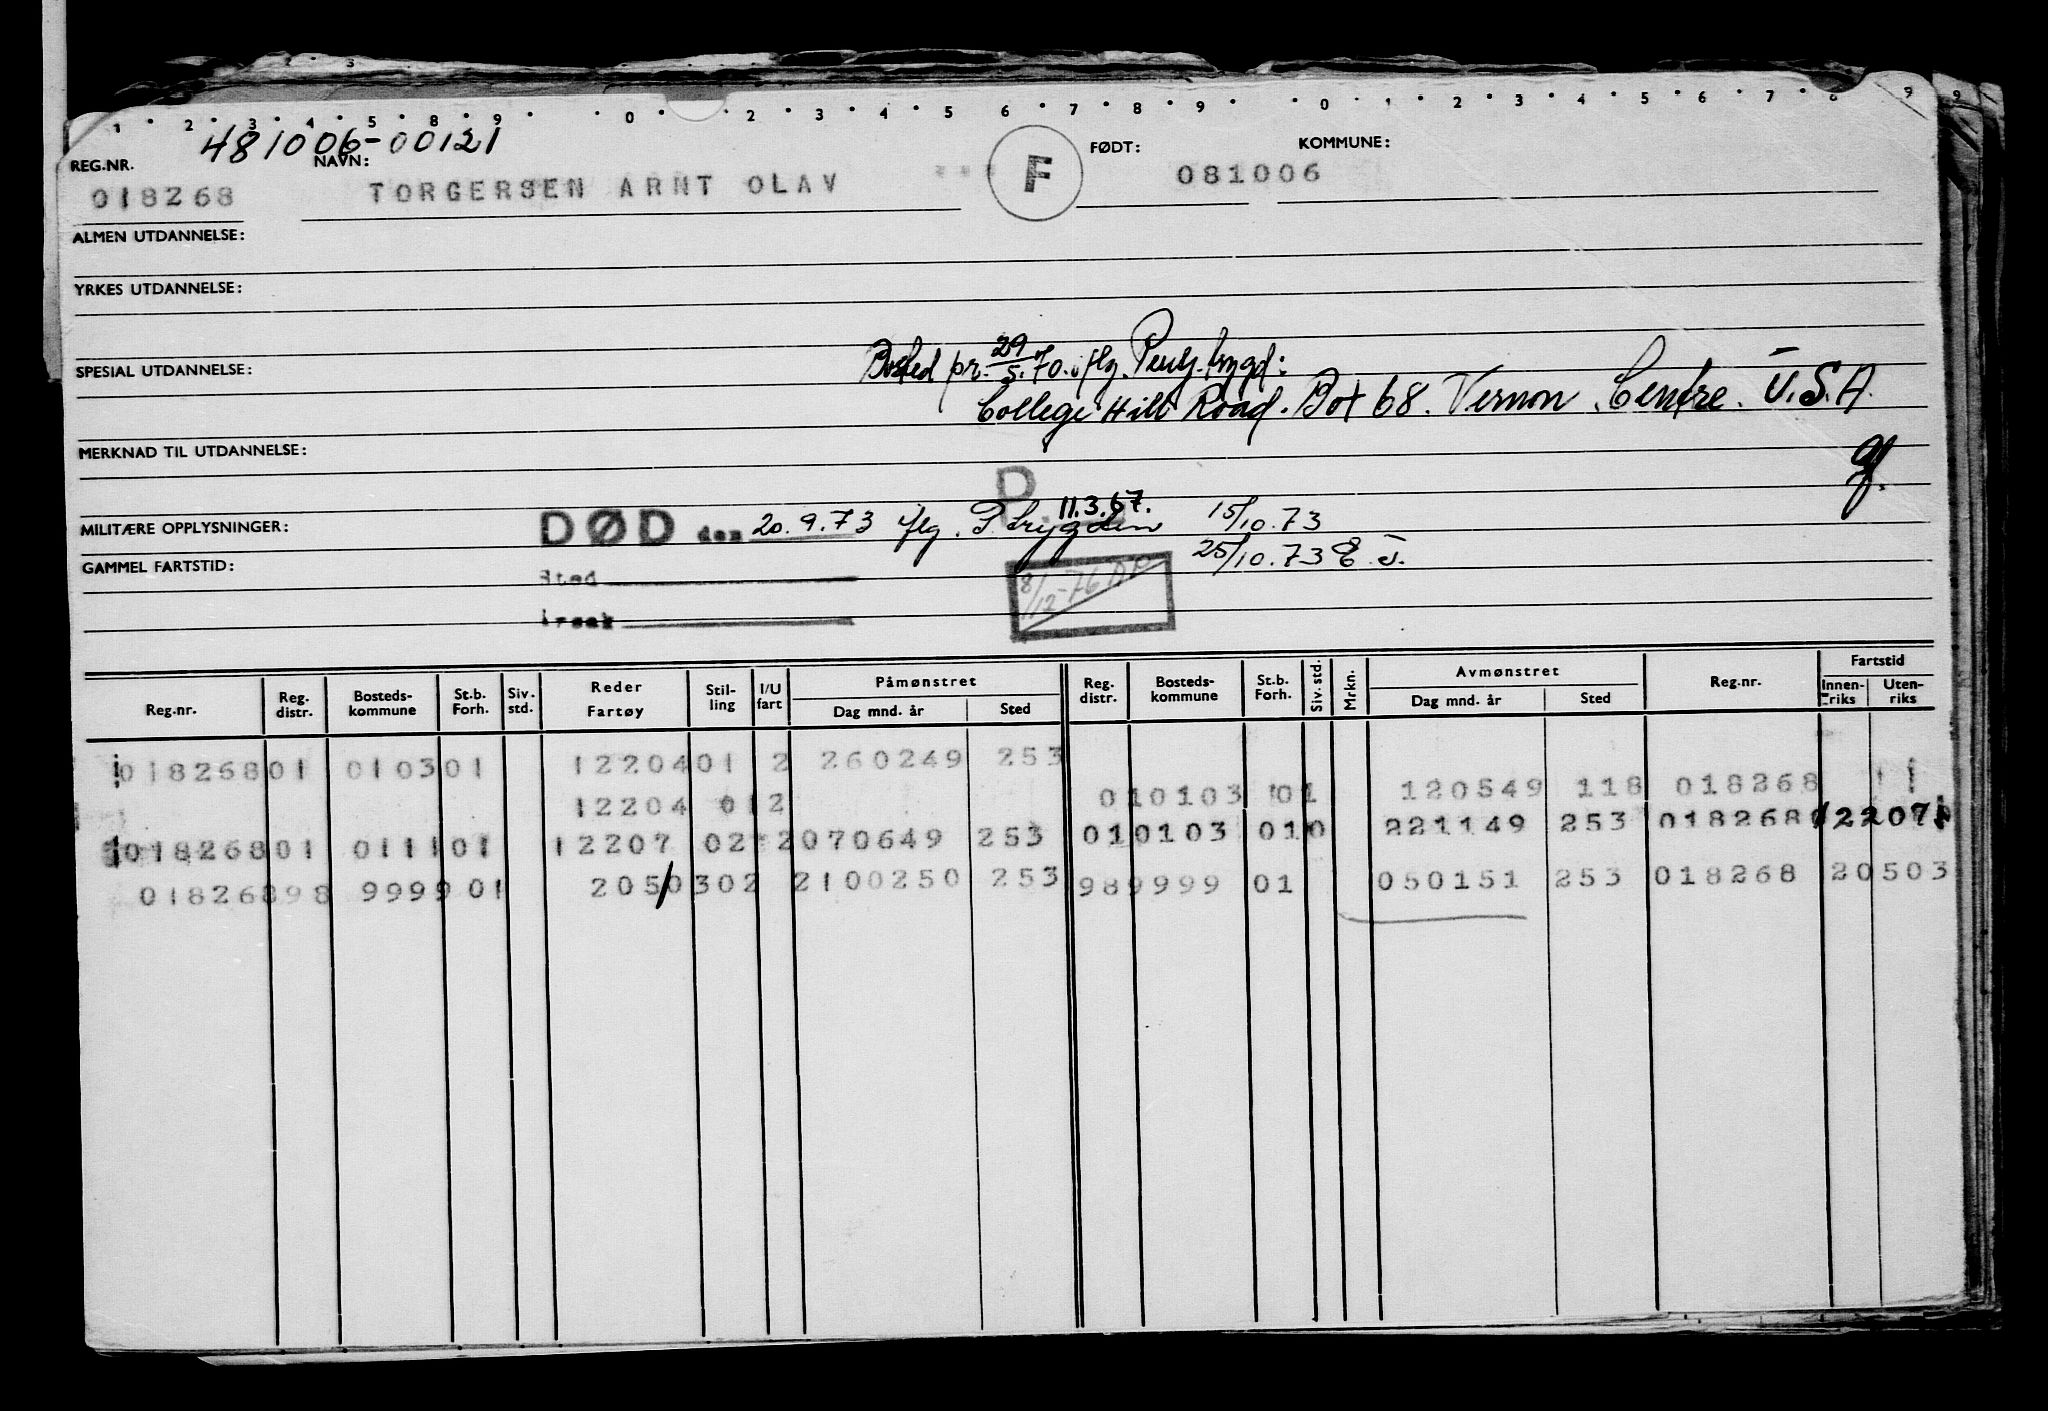 1 · 2 · 3 · 4 · 5 · 8 · 9 · · 0 · · 2 · 3 · 4 · 5 · 6 · 7 · 8 · 9 · · 0 · 1 · 2 · 3 · 4 · 5 · 6 · 7 · 8 9 9
481006-00121
REG.NR. NAVN: FØDT: KOMMUNE:
018268 TORGERSEN ARNT OLAV F 081006
ALMEN UTDANNELSE:
YRKES UTDANNELSE:
SPESIAL UTDANNELSE:
Bosted pr. 29/5.70. flg. trygd:
College Hill Road. Box 68. Vernon Centre. U.S.A.
MERKNAD TIL UTDANNELSE:
P.
11.3.67.
MILITÆRE OPPLYSNINGER: DØD den 20.9.73 flg. P. trygden 15/10.73
25/10.73 E.J.
GAMMEL FARTSTID: Sted
Årsak
8/12-76
Reg.nr. Reg. distr. Bosteds-kommune St.b. Forh. Siv. std. Reder Fartøy Stil-ling I/U fart Påmønstret Dag mnd. år Sted Reg. distr. Bosteds-kommune St.b. Forh. Siv. std. Mrkn. Avmønstret Dag mnd. år Sted Reg.nr. Fartstid Innen-riks Uten-riks
01826801 010301 1220401 2 260249 253
12204 012 010103 01 120549 118 018268
01826801 011101 12207 02 2070649 253 010103 010 221149 253 018268 12207
01826898 999901 2050302 2100250 253 989999 01 050151 253 018268 20503